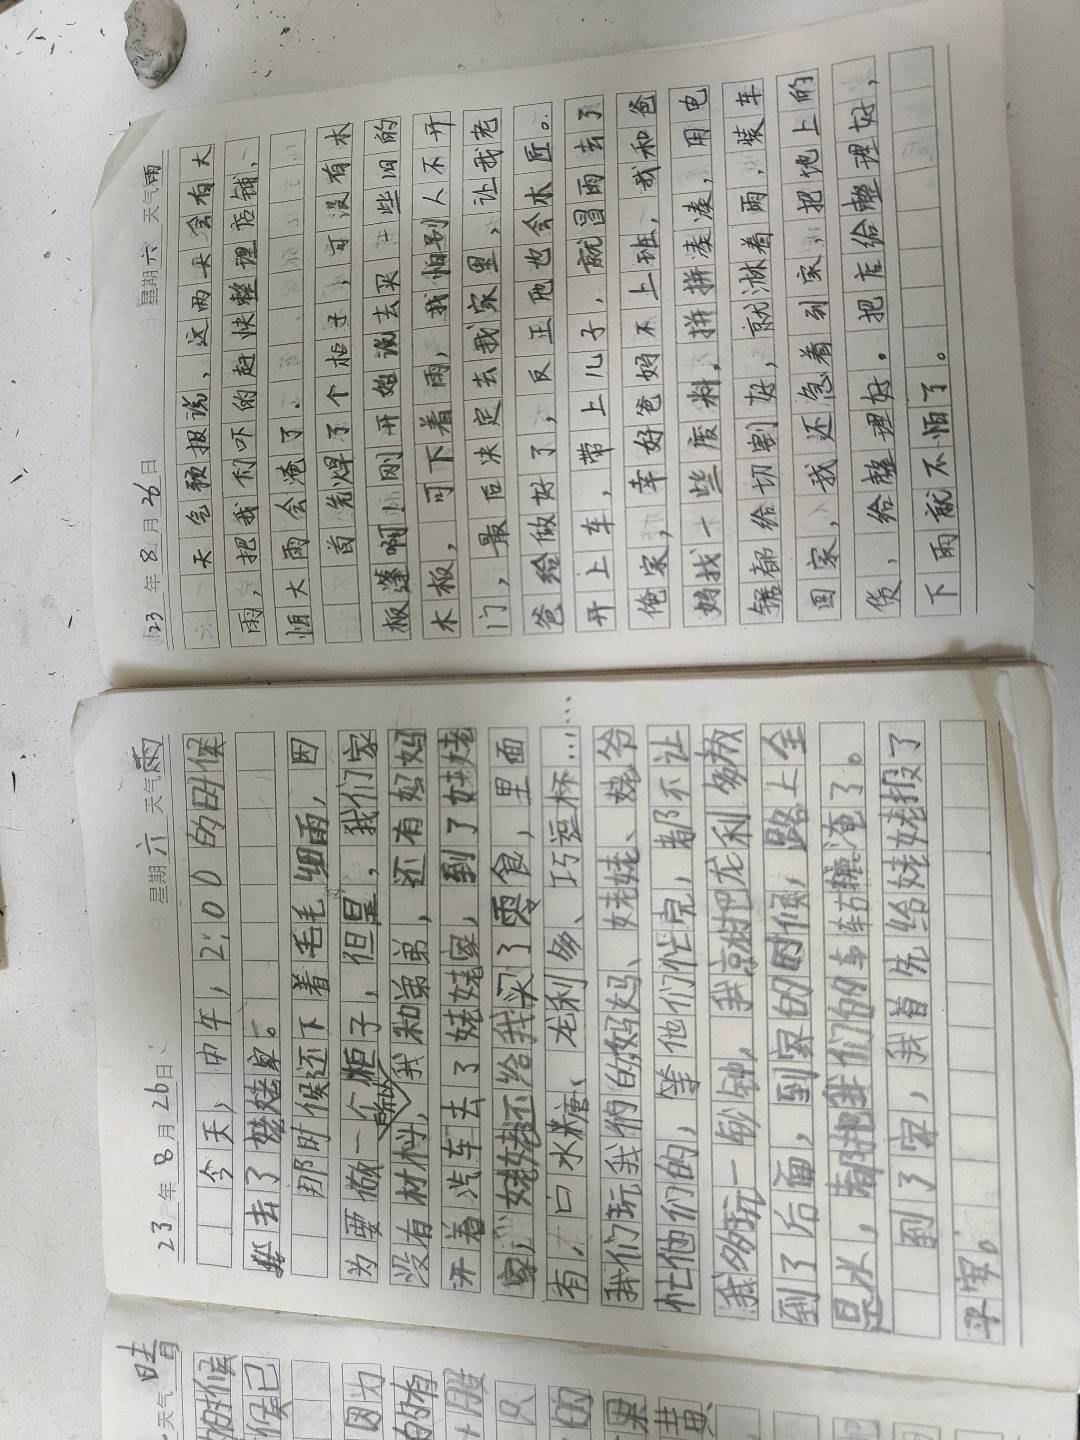 天气 晴
时候
候已
因为
的有
十
只
的
果
黄
23 年 8 月 26 日 星期 六 天气 雨
今天，中午，2:00的时候
去了姥姥家。
那时候还下着毛毛细雨，因
为要做一个柜子，但是，我们家
没有材料，所以我和弟弟，还有妈妈
开着汽车去了姥姥家，到了姥姥
家，姥姥还给我买了零食，里面
有，口水糖、龙利多、巧逗杯……
我们玩我们的妈妈、姥姥、姥爷
忙他们的，等他们忙完，都不让
我多玩一秒钟，我就把龙利多放
到了后面，到家的时候，路上全
是水，都把我们的车车辘淹了。
到了家，我首先给姥姥报了
平安。
23 年 8 月 26 日 星期 六 天气 雨
天气预报说，这两天会有大
雨，把我们吓的赶快整理店铺，
怕大雨会淹了．
首先焊了个柜子，可没有木
板蓬啊！刚开始说去买一些旧的
木板，可下着雨，我怕别人不开
门，最后决定去我家里，让我老
爸给做好了，反正他也会木匠。
开上车，带上儿子，就冒雨去了
俺家，幸好爸妈不上班，我和爸
妈找一些废料，拼拼凑凑，用电
锯都给切割好，就淋着雨，装车
回家，我还急着到家，把地上的
货，给整理好。把店给整理好，
下雨就不怕了。